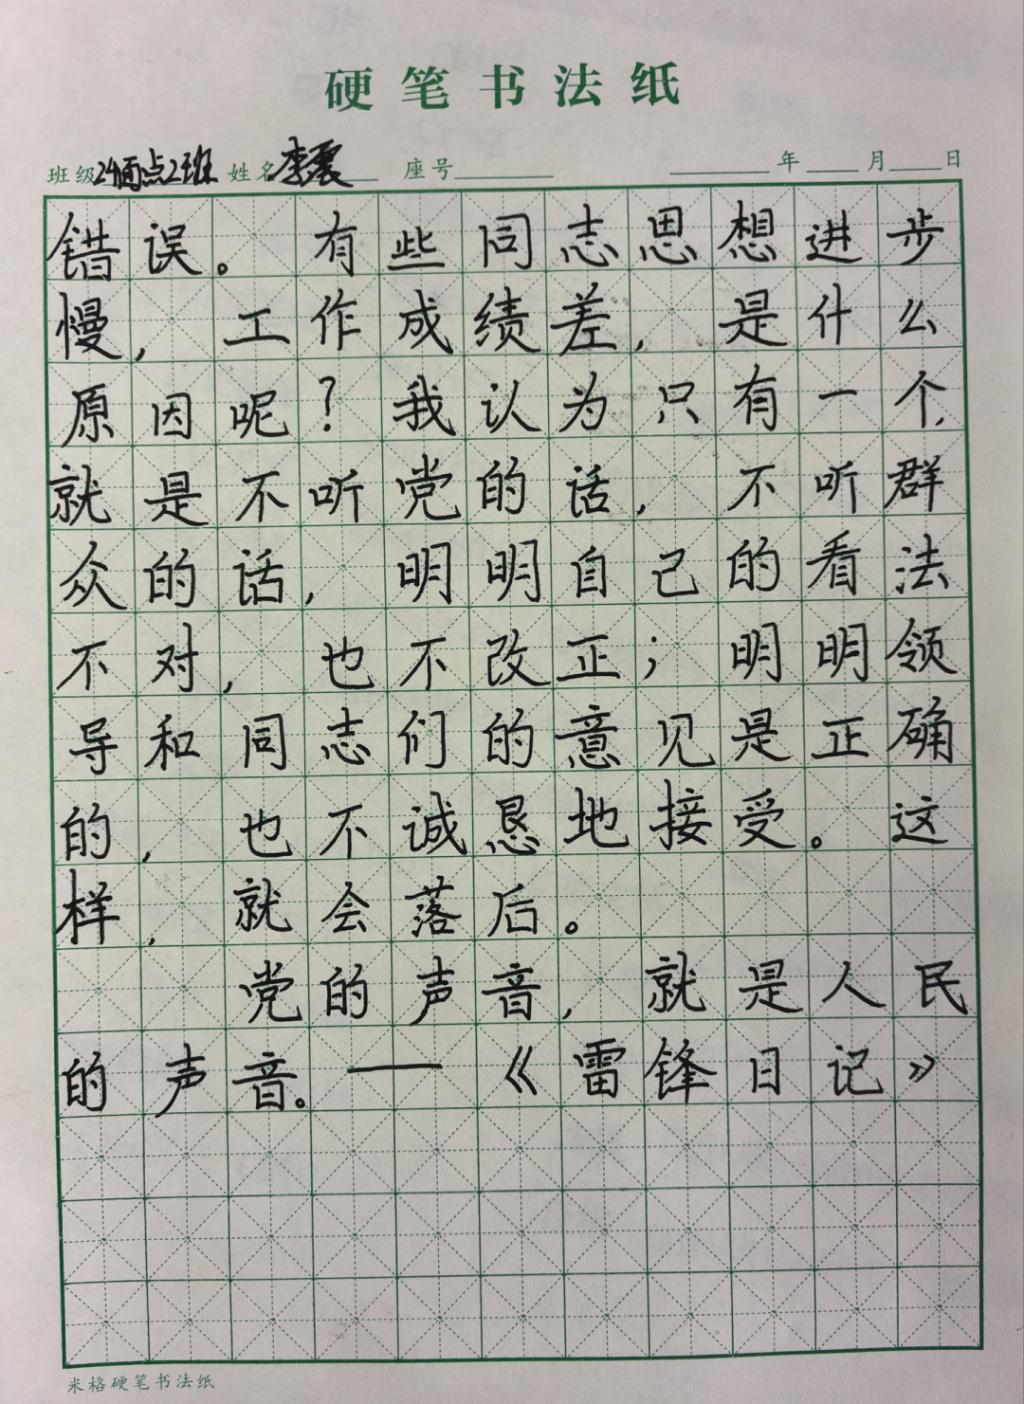 硬笔书法纸
班级24面点2班 姓名李震 座号 年 月 日
错误。有些同志思想进步
慢，工作成绩差，是什么
原因呢？我认为只有一个，
就是不听党的话，不听群
众的话，明明自己的看法
不对，也不改正；明明领
导和同志们的意见是正确
的，也不诚恳地接受。这
样，就会落后。
党的声音，就是人民
的声音。——《雷锋日记》
米格硬笔书法纸